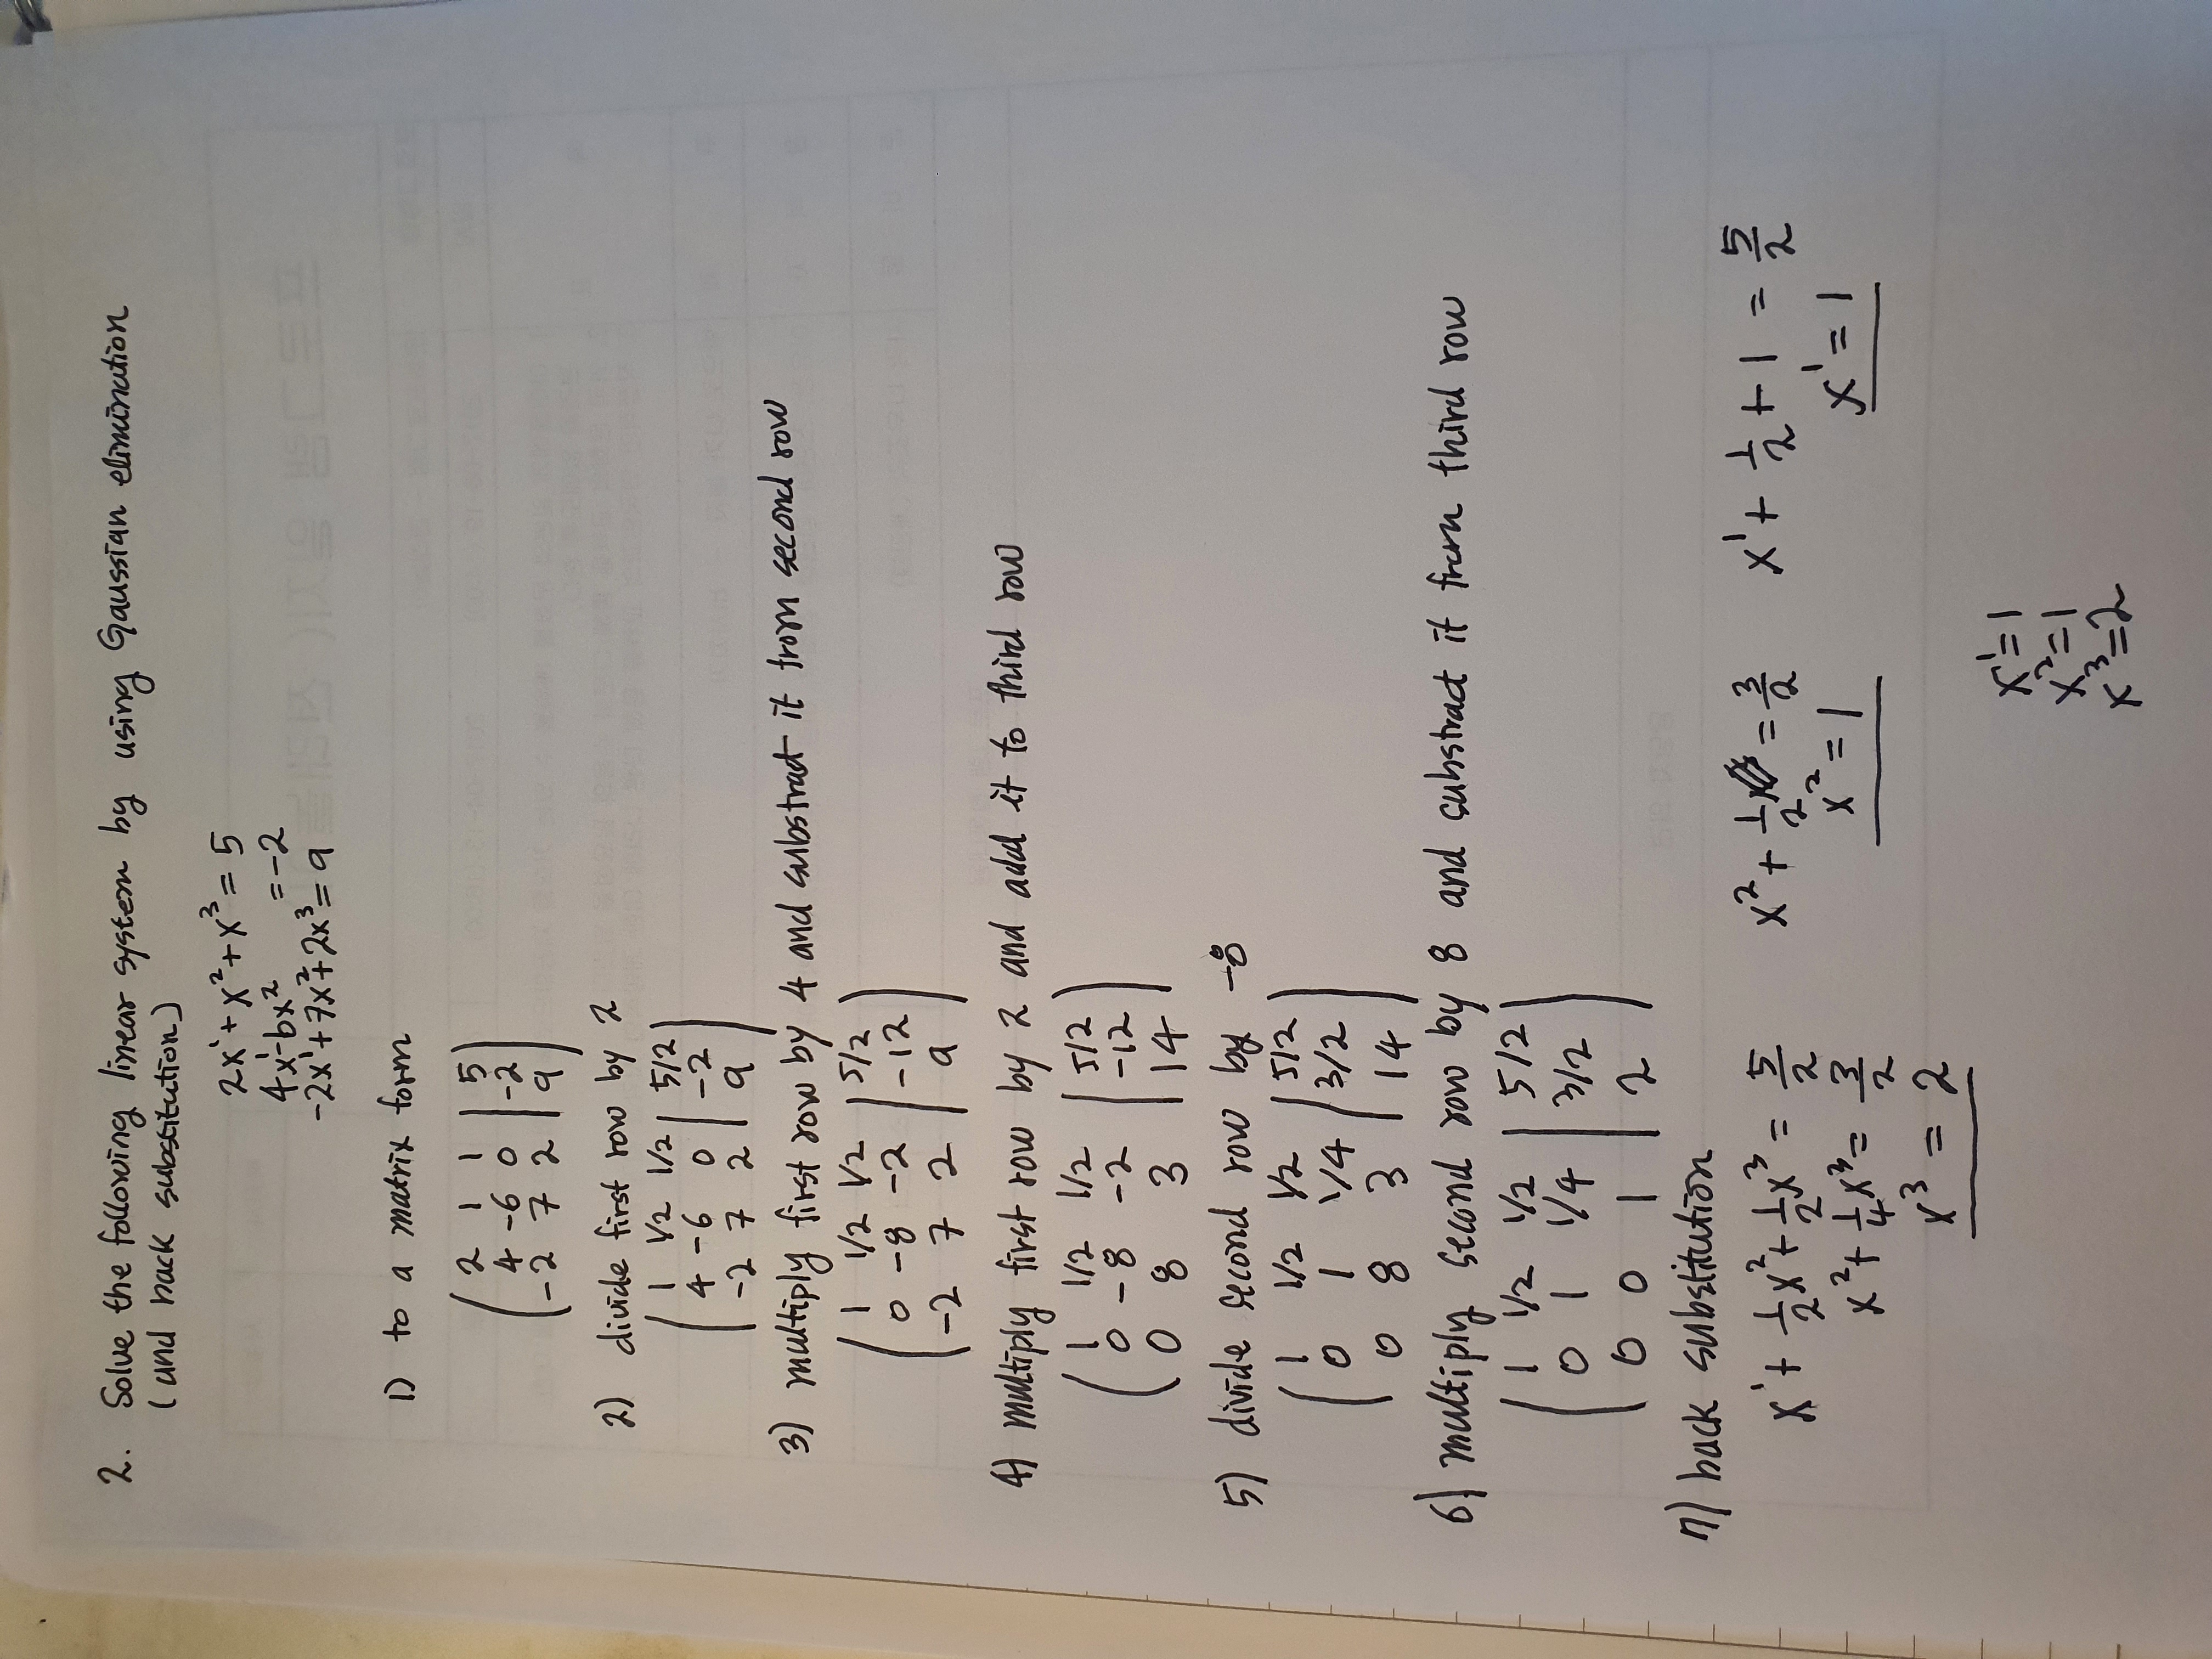 2. Solve the following linear system by using Gaussian elimination
(and back substitution)
2x¹+x²+x³=5
4x¹-6x² =-2
-2x¹+7x²+2x³=9
1) to a matrix form
2 1 1 | 5
4 -6 0 | -2
-2 7 2 | 9
2) divide first row by 2
1 1/2 1/2 | 5/2
4 -6 0 | -2
-2 7 2 | 9
3) multiply first row by 4 and substract it from second row
1 1/2 1/2 | 5/2
0 -8 -2 | -12
-2 7 2 | 9
4) multiply first row by 2 and add it to third row
1 1/2 1/2 | 5/2
0 -8 -2 | -12
0 8 3 | 14
5) divide second row by -8
1 1/2 1/2 | 5/2
0 1 1/4 | 3/2
0 8 3 | 14
6) multiply second row by 8 and substract it from third row
1 1/2 1/2 | 5/2
0 1 1/4 | 3/2
0 0 1 | 2
7) back substitution
x¹+1/2x²+1/2x³=5/2
x²+1/4x³=3/2
x³=2
x²+1/2=3/2
x²=1
x¹+1/2+1=5/2
x¹=1
x¹=1
x²=1
x³=2